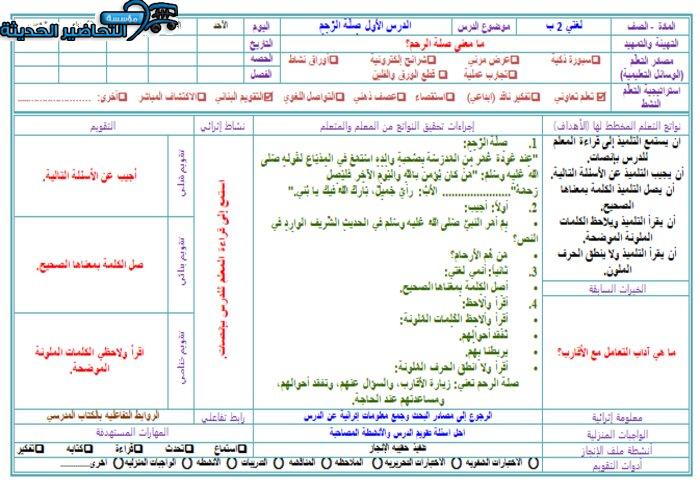 مؤسسة التحاضير الحديثة
المادة - الصف
لغتي 2 ب
موضوع الدرس
الدرس الأول صِلَة الرَّحِمِ
اليوم
الأحد
التهيئة والتمهيد
ما معنى صلة الرحم؟
التاريخ
مصادر التعلم
(الوسائل التعليمية)
سبورة ذكية
عرض مرئي
شرائح إلكترونية
أوراق نشاط
تجارب عملية
قطع الورق والفلين
الحصه
الفصل
استراتيجية التعلم
النشط
تعلم تعاوني
تفكير ناقد (ابداعي)
استقصاء
عصف ذهني
التواصل اللغوي
التقويم البنائي
الاكتشاف المباشر
أخرى: ............
نواتج التعلم المخطط لها (الأهداف)
إجراءات تحقيق النواتج من المعلم والمتعلم
نشاط إثرائي
التقويم
ان يستمع التلميذ إلى قراءة المعلم
للدرس بإنصات.
أن يجيب التلميذ عن الأسئلة التالية.
أن يصل التلميذ الكلمة بمعناها
الصحيح.
أن يقرأ التلميذ ويلاحظ الكلمات
الملونة الموضحة.
أن يقرأ التلميذ ولا ينطق الحرف
الملون.
الخبرات السابقة
ما هي آداب التعامل مع الأقارب؟
1. صلَة الرَّحِمِ:
"عند عودة عُمَر من المَدرَسَة بصُحبَةِ والِدِهِ استَمَعَ في المِذيَاع لقولِهِ صَلَّى
الله عَلَيهِ وسلم: "مَن كَانَ يُؤمِنُ بِاللَّهِ وَاليَومِ الآخرِ فَليَصِل
رَحِمَهُ"...................... الأبُ: رأيٌ جَميلٌ، بَارَكَ الله فيكَ يا بُنَي."
2. أولاً: أجيب:
بِمَ أمَرَ النبيُّ صَلَّى الله عَلَيهِ وَسَلَّمَ في الحديثِ الشَّريفِ الوارِدِ في
النص؟
مَن هُم الأرحام؟
3. ثانياً: أنمي لغتي:
أصل الكلمة بمعناها الصحيح.
4. أقرأ وألاحظ:
أقرأ وألاحظ الكلمات المُلونة:
تفقد أحوالِهم.
يربطنا بهم.
أقرأ ولا أنطق الحرف المُلونة:
صلة الرحم تعني: زيارة الأقارب، والسؤال عنهم، وتفقد أحوالهم،
ومساعدتهم عند الحاجة.
استمع إلى قراءة المعلم للدرس بإنصات.
تقويم قبلي
أجيب عن الأسئلة التالية.
تقويم بنائي
صل الكلمة بمعناها الصحيح.
تقويم ختامي
اقرأ ولاحظي الكلمات الملونة
الموضحة.
معلومة إثرائية
الرجوع إلى مصادر البحث وجمع معلومات إثرائية عن الدرس
رابط تفاعلي
الروابط التفاعليه بالكتاب المدرسي
الواجبات المنزلية
احل اسئلة تقويم الدرس والأنشطة المصاحبة
المهارات المستهدفة
أنشطة ملف الإنجاز
استماع
تحدث
قراءة
كتابه
تفكير
أدوات التقويم
الاختبارات الشفويه
الاختبارات التحريريه
الملاحظه
المناقشه
التدريبات
الأنشطه
الواجبات المنزليه
اخرى............